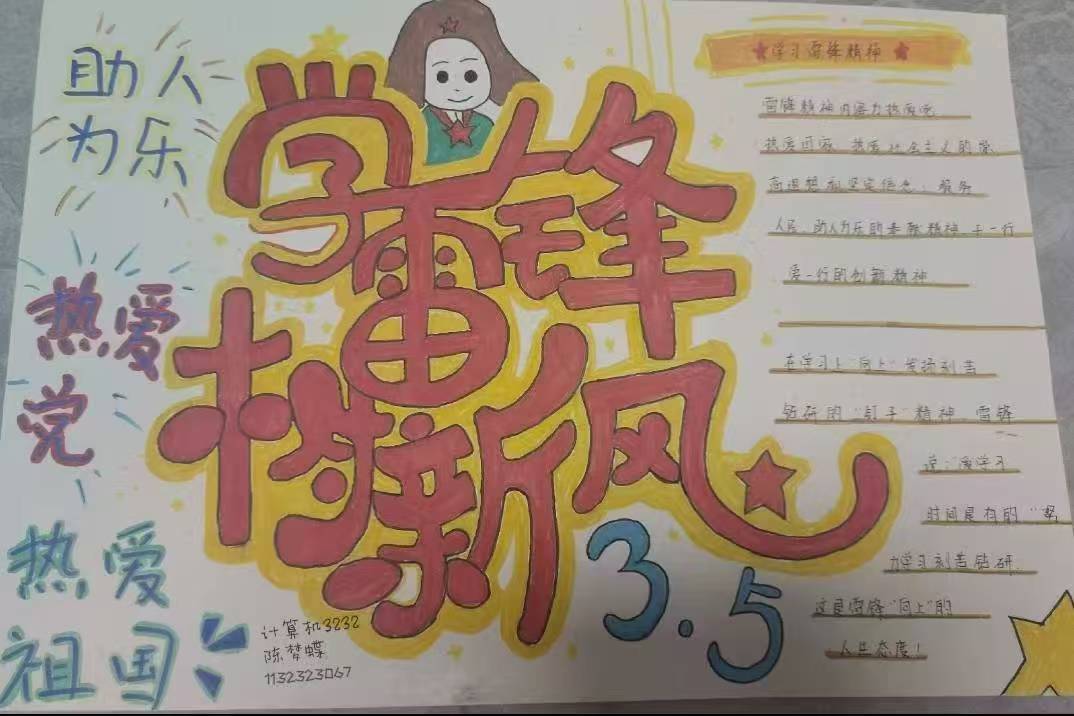 助人
为乐
热爱
党
热爱
祖国
学雷锋
树新风
3.5
计算机3232
陈梦蝶
1132323067
学习雷锋精神
雷锋精神内涵为热爱党
热爱国家 热爱社会主义的崇
高理想和坚定信念,服务
人民、助人为乐的奉献精神,干一行
爱一行的创新精神
在学习上"向上"发扬刻苦
钻研的"钉子"精神 雷锋
说:"学习
时间是有的"努
力学习刻苦钻研
这是雷锋"向上"的
人生态度!